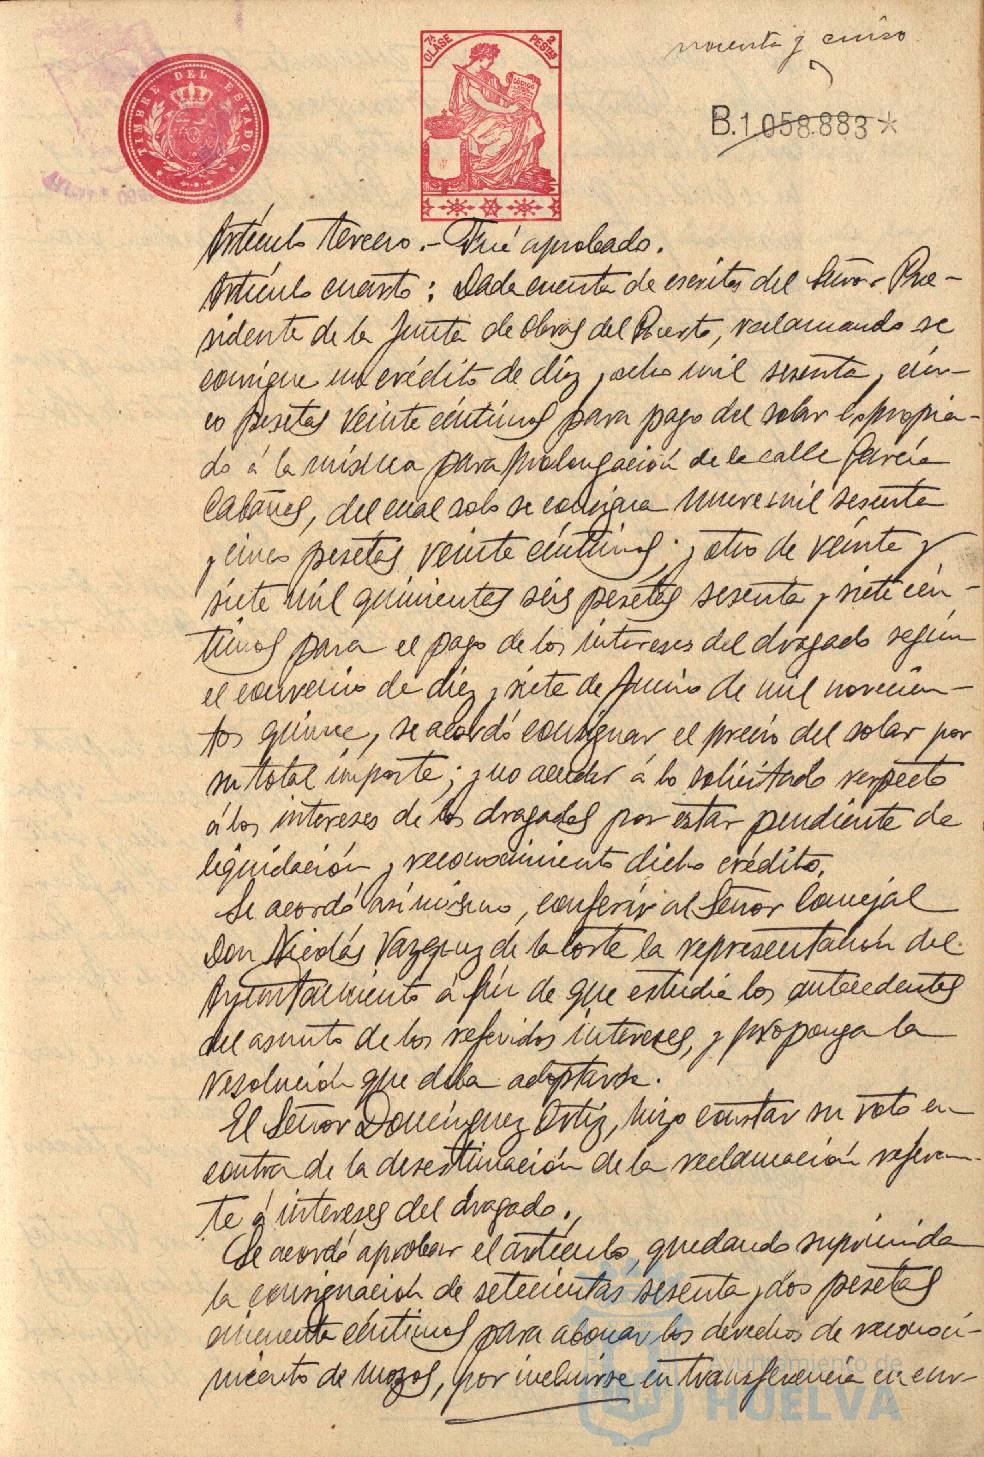 noventa y cinco
TIMBRE DEL ESTADO
7ª CLASE 2 PESETAS
B.1.058.883*
Artículo tercero.- Fué aprobado.
Artículo cuarto: Dada cuenta de escritos del Señor Pre-
sidente de la Junta de Obras del Puerto, reclamando se
consigne un crédito de diez y ocho mil sesenta y cin-
co pesetas veinte céntimos para pago del solar expropia-
do á la misma para prolongación de la calle García
Cabañas, del cual solo se consigna nueve mil sesenta
y cinco pesetas veinte céntimos; y otro de veinte y
siete mil quinientas seis pesetas sesenta y siete cén-
timos para el pago de los intereses del dragado según
el convenio de diez y siete de Junio de mil novecien-
tos quince, se acordó consignar el precio del solar por
su total importe; y no acceder á lo solicitado respecto
á los intereses de los dragados por estar pendiente de
liquidación y reconocimiento dicho crédito.
Se acordó asimismo, conferir al Señor Concejal
Don Nicolás Vazquez de la Corte la representación del
Ayuntamiento á fin de que estudie los antecedentes
del asunto de los referidos intereses, y proponga la
resolución que deba adoptarse.
El Señor Domínguez Ortiz, hizo constar su voto en
contra de la desestimación de la reclamación referen-
te á intereses del dragado.
Se acordó aprobar el artículo, quedando suprimida
la consignación de setecientas sesenta y dos pesetas
cincuenta céntimos para abonar los derechos de reconoci-
miento de mozos, por incluirse en transferencia en cur-
Ayuntamiento de
HUELVA